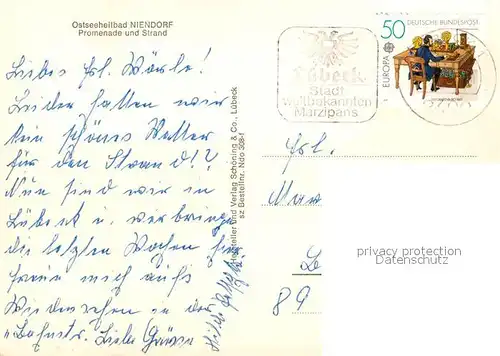 Ostseeheilbad NIENDORF
Promenade und Strand
Liebes Frl. Wörle!
Leider hatten wir
kein schönes Wetter
für den Strand!?
Nun sind wir in
Lübeck u. verbringen
die letzten Wochen hier
freue mich aufs
Wiedersehen in der
Bahnstr. Liebe Grüsse
Hersteller und Verlag Schöning & Co., Lübeck
sz Bestellnr. Ndo 368-f
Lübeck
Stadt
weltbekannten
Marzipans
50
DEUTSCHE BUNDESPOST
EUROPA
Frl.
89
privacy protection
Datenschutz